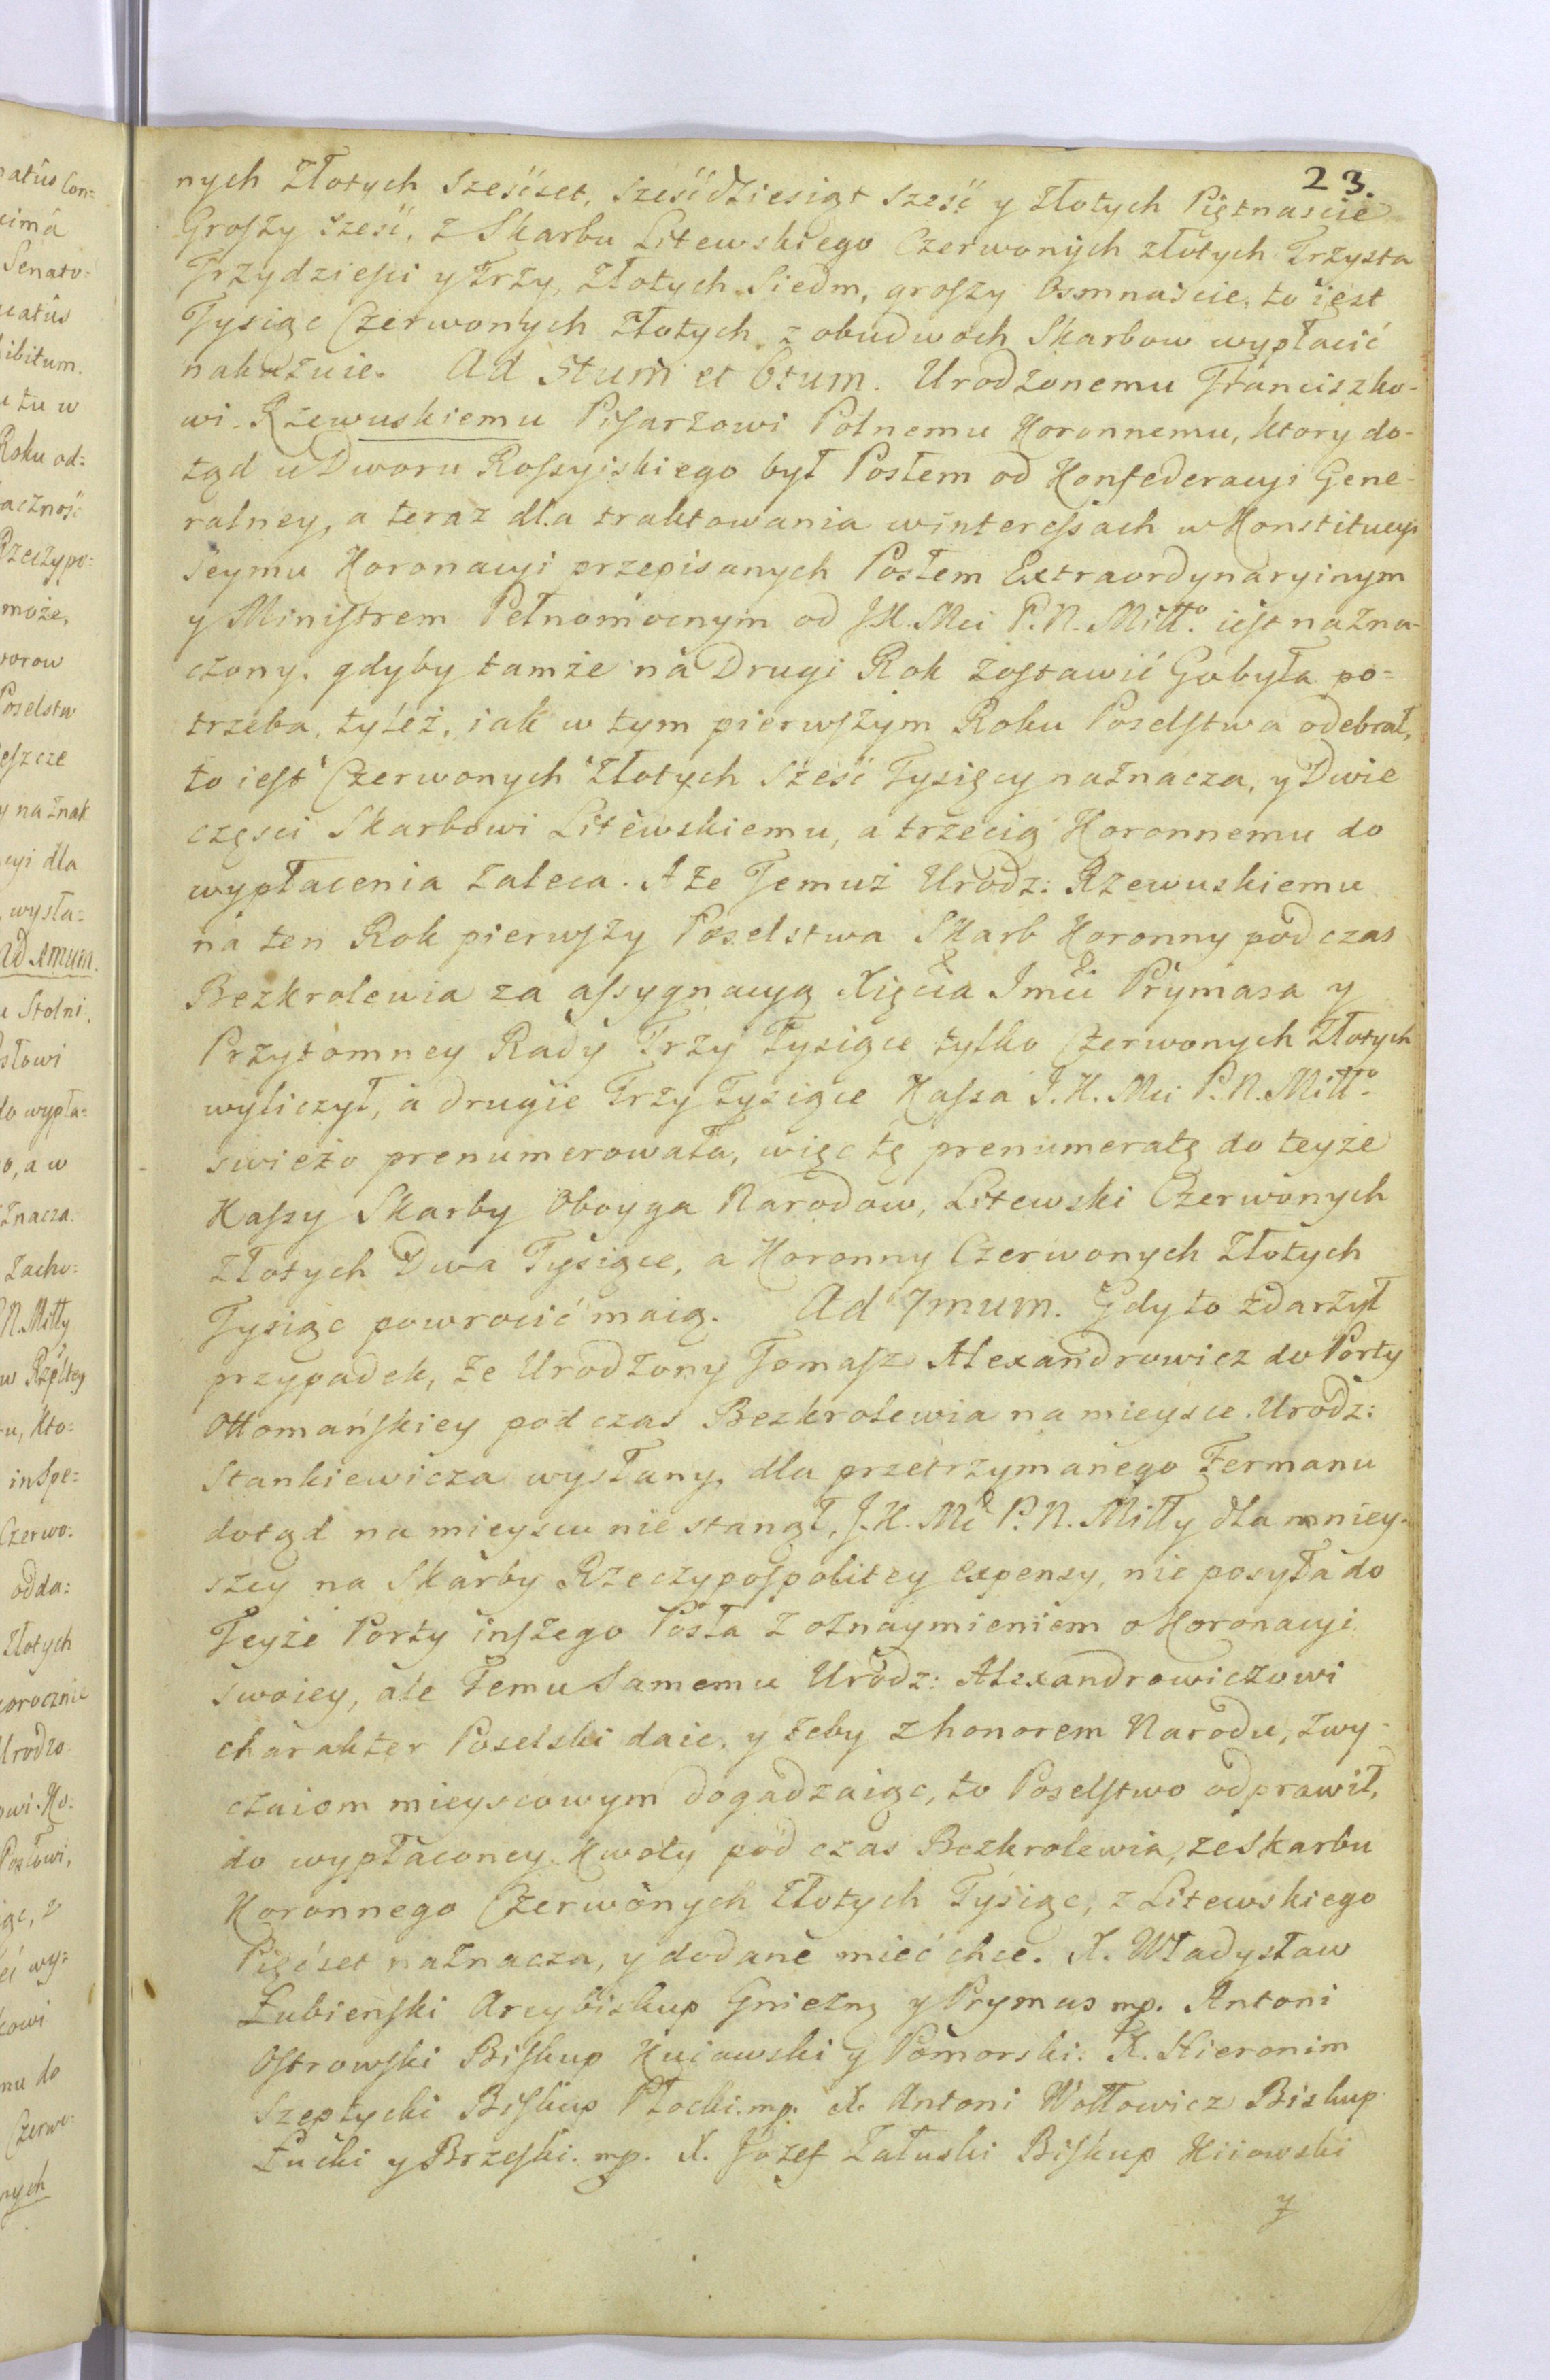 23.
nych Złotych Sześćset, Sześćdziesiąt Sześć y złotych Piętnascie
Groszy sześć, z Skarbu Litewskiego Czerwonych złotych Trzysta
Trzydzieści y trzy, Złotych Siedm, groszy Osmnaście, to iest
Tysiąc Czerwonych Złotych z obudwoch Skarbow wypłacić
nakazuie. Ad 5tum et 6tum. Urodzonemu Franciszko-
wi Rzewuskiemu Pisarzowi Polnemu Koronnemu, ktory do-
tąd u Dworu Rossyiskiego był Posłem od Konfederacyi Gene-
ralney, a teraz dla traktowania w interessach w Konstitucyi
Seymu Koronacyi przepisanych Posłem Extraordynaryinym
y Ministrem Pełnomocnym od J.K. Mci P. N. Miłło. iest nazna-
czony, gdyby tamże na Drugi Rok zostawić Go była po=
trzeba, tyleż, iak w tym pierwszym Roku Poselstwa odebrał,
to iest Czerwonych Złotych Sześć Tysięcy naznacza, y Dwie
części Skarbowi Litewskiemu, a trzecią Koronnemu do
wypłacenia zaleca. A że Temuż Urodz: Rzewuskiemu
na ten Rok pierwszy Poselstwa Skarb Koronny pod czas
Bezkrolewia za assygnacyą Xięcia Jmci Prymasa y
Przytomney Rady Trzy Tysiące tylko Czerwonych Złotych
wyliczył, a drugie Trzy Tysiące Kassa J. K. Mci P. N. Miłło.
swieżo prenumerowała, więc tę prenumeratę do teyże
Kassy Skarby Oboyga Narodow, Litewski Czerwonych
Złotych Dwa Tysiące, a Koronny Czerwonych Złotych
Tysiąc powrocić maią. Ad 7mum. Gdy to zdarzył
przypadek, że Urodzony Tomasz Alexandrowicz do Porty
Ottomańskiey pod czas Bezkrolewia na mieysce Urodz:
Stankiewicza wysłany, dla przetrzymanego Fermanu
dotąd na mieyscu nie stanął, J. K. Mć P. N. Miłły dla mniey-
szey na Skarby Rzeczypospolitey expensy, nie posyła do
Teyże Porty inszego Posła z oznaymieniem o Koronacyi
swoiey, ale Temu Samemu Urodz: Alexandrowiczowi
charakter Poselski daie, y żeby z honorem Narodu, zwy-
czaiom mieyscowym dogadzaiąc, to Poselstwo odprawił,
do wypłaconey Kwoty pod czas Bezkrolewia, ze Skarbu
Koronnego Czerwonych Złotych Tysiąc, z Litewskiego
Pięćset naznacza, y dodane mieć chce. X. Władysław
Łubieński Arcybiskup Gniezn y Prymas mp. Antoni
Ostrowski Biskup Kuiawski y Pomorski. X. Hieronim
Szeptycki Biskup Płocki. mp. X. Antoni Wołłowicz Biskup
Łucki y Brzeski. mp. X. Jozef Załuski Biskup Kiiowski
y